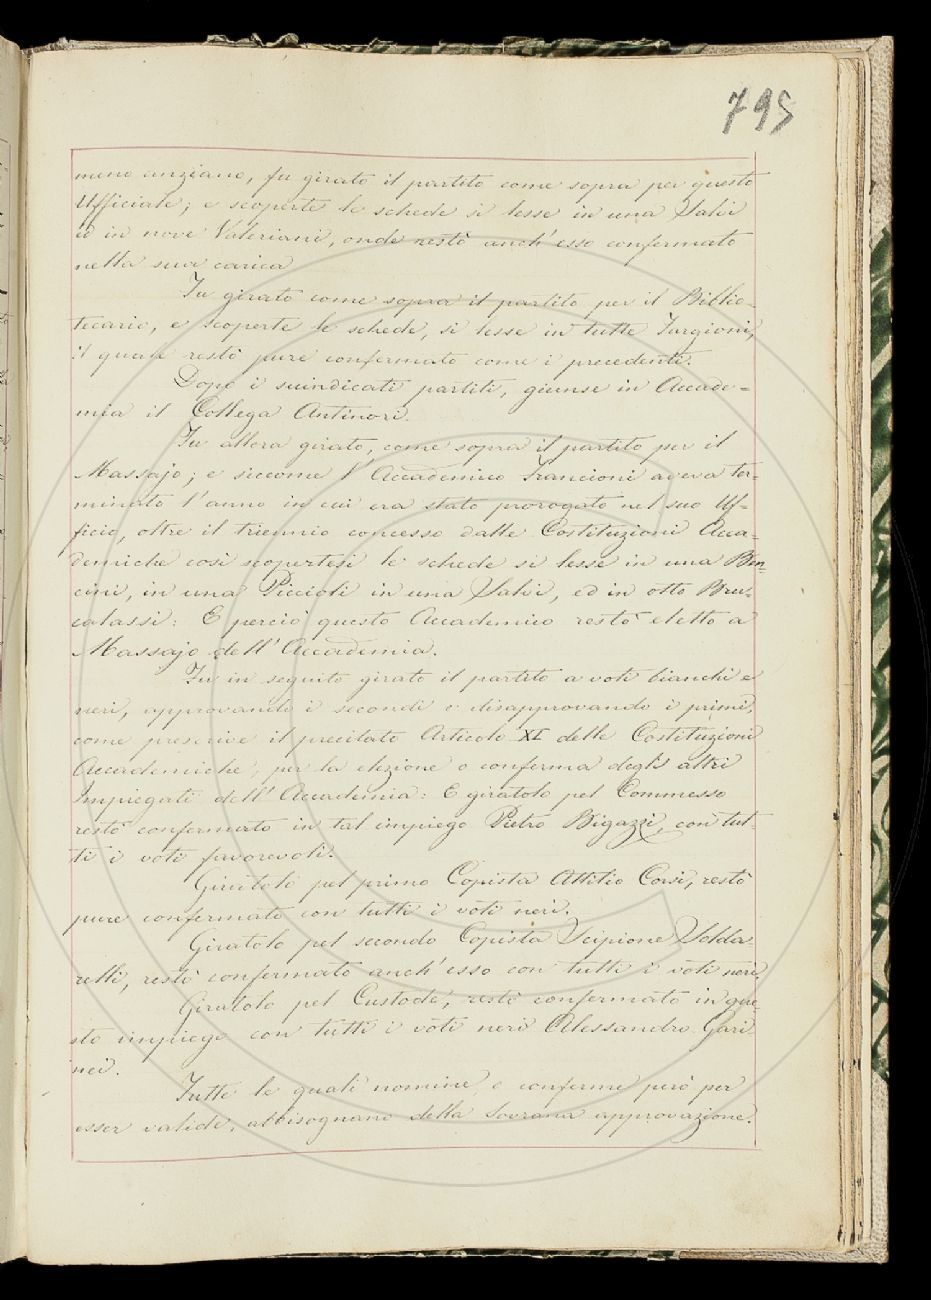 795
meno anziano, fu girato il partito come sopra per questo
Ufficiale; e scoperte le schede si lesse in una Salvi
ed in nove Valeriani, onde restò anch'esso confermato
nella sua carica
Fu girato come sopra il partito per il Biblio-
tecario, e scoperte le schede, si lesse in tutte Targioni,
il quale restò pure confermato come i precedenti.
Dopo i suindicati partiti, giunse in Accade-
mia il Collega Antinori.
Fu allora girato, come sopra il partito per il
Massajo; e siccome l'Accademico Francioni aveva ter-
minato l'anno in cui era stato prorogato nel suo Uf-
ficio, oltre il triennio concesso dalle Costituzioni Acca-
demiche così scopertesi le schede si lesse in una Ben-
cini, in una Piccioli in una Salvi, ed in otto Bru-
calassi: E perciò questo Accademico restò eletto a
Massajo dell'Accademia.
Fu in seguito girato il partito a voti bianchi e
neri, approvando i secondi e disapprovando i primi,
come prescrive il precitato Articolo XI delle Costituzioni
Accademiche, per la elezione o conferma degli altri
Impiegati dell'Accademia: E giratolo pel Commesso
restò confermato in tal impiego Pietro Bigazzi, con tut-
ti i voti favorevoli.
Giratolo pel primo Copista Attilio Corsi, restò
pure confermato con tutti i voti neri.
Giratolo pel secondo Copista Scipione Solda-
relli, restò confermato anch'esso con tutti i voti neri.
Giratolo pel Custode, restò confermato in que-
sto impiego con tutti i voti neri Alessandro Gari-
nei.
Tutte le quali nomine e conferme però per
esser valide, abbisognano della Sovrana approvazione.